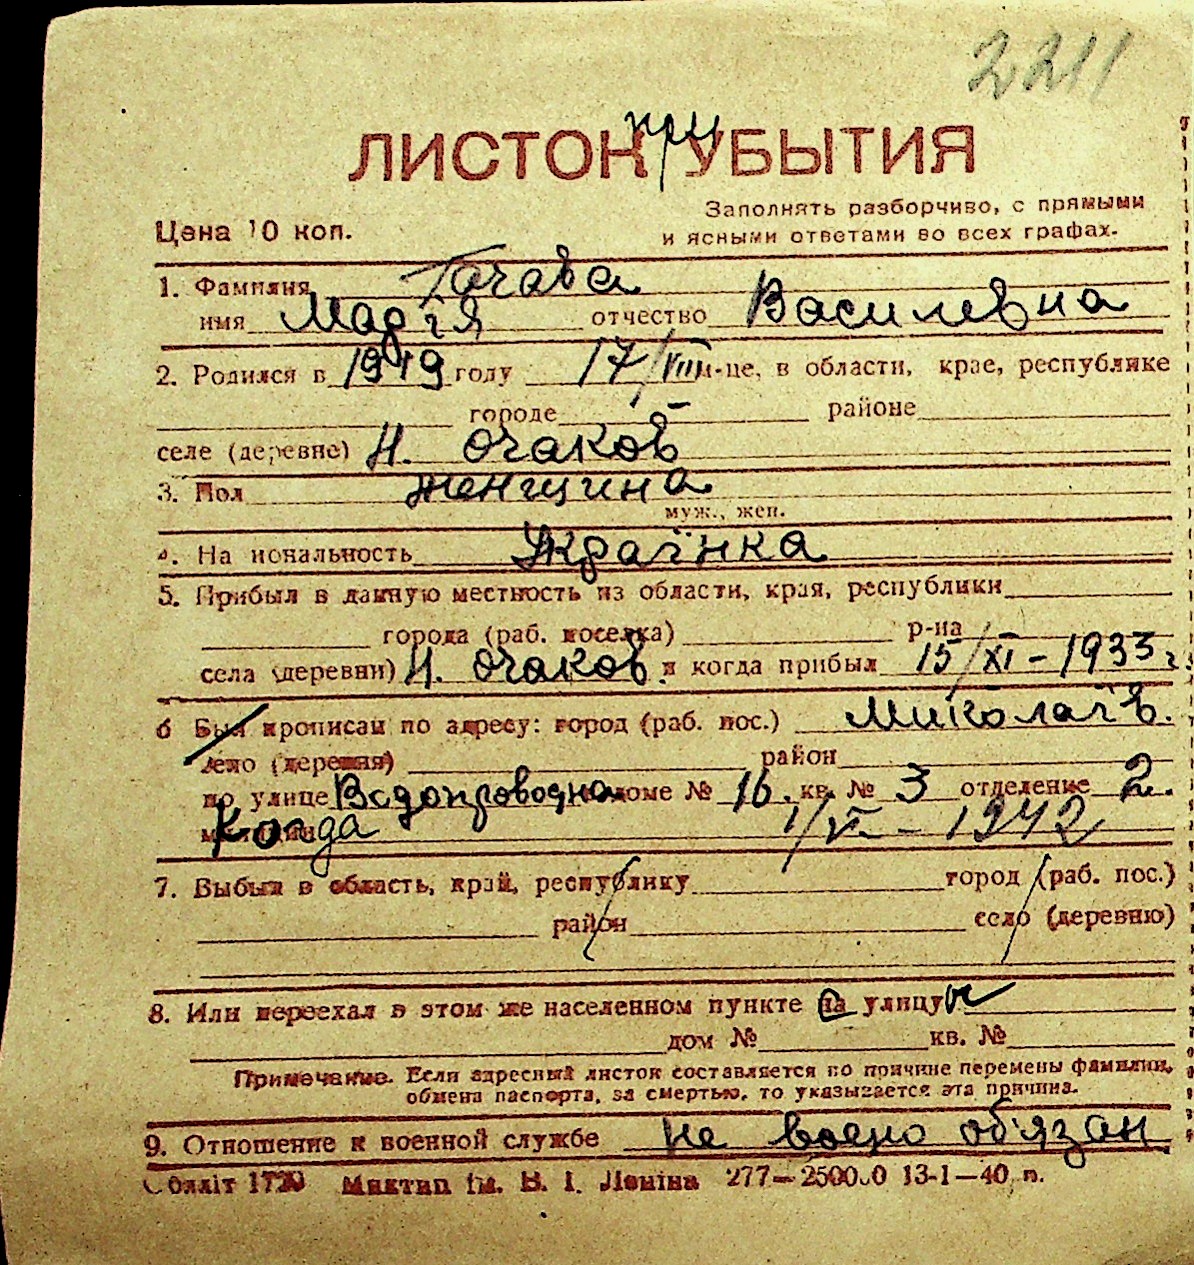 2211
ЛИСТОК при УБЫТИЯ
Заполнять разборчиво, с прямыми
Цена 10 коп. и ясными ответами во всех графах.
1. Фамилия Гачава
имя Марія отчество Василевна
2. Родился в 1919 году 17/VIII м-це, в области, крае, республике
городе районе
селе (деревне) Н. Очаков
3. Пол женщина
муж., жен.
4. На иональность Українка
5. Прибыл в данную местность из области, края, республики
города (раб. поселка) р-на
села (деревни) Н. Очаков. и когда прибыл 15/XI-1933 г.
6 Был прописан по адресу: город (раб. пос.) Миколаїв.
село (деревня) район
по улице Водопроводна доме № 16. кв. № 3 отделение 2.
милиции Когда 1/VI-1942
7. Выбыл в область, край, республику город (раб. пос.)
район село (деревню)
8. Или переехал в этом же населенном пункте на улицу
дом № кв. №
Примечание. Если адресный листок составляется по причине перемены фамилии,
обмена паспорта, за смертью, то указывается эта причина.
9. Отношение к военной службе не воено об'язан
Облліт 1720 Миктип ім. В. І. Леніна 277—25000 13-1—40 п.